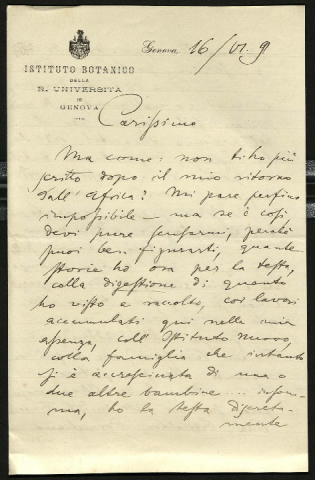 ISTITUTO BOTANICO
DELLA
R. UNIVERSITÀ
DI
GENOVA
Genova, 16/VI. 9
Carissimo
Ma come: non ti ho più
scritto dopo il mio ritorno
dall'Africa? Mi pare perfino
impossibile — ma se è così,
devi pure scusarmi, perchè
puoi ben figurarti, quante
storie ho ora per la testa,
colla digestione di quanto
ho visto e raccolto, coi lavori
accumulati qui nella mia
assenza, coll'Istituto nuovo,
colla famiglia che intanto
si è accresciuta di una o
due altre bambine ... insom-
ma, ho la testa discreta-
mente